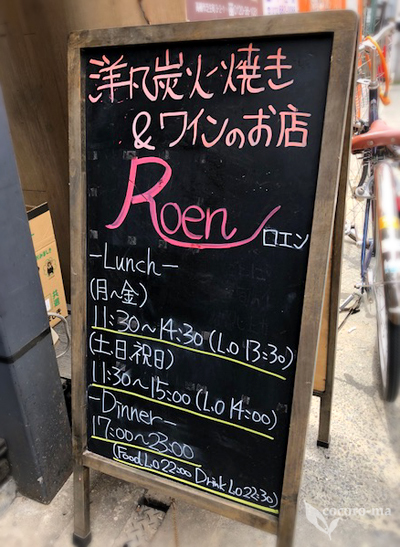 洋風炭火焼き
&ワインのお店
Roen
ロエン
-Lunch-
(月~金)
11:30~14:30 (L.o 13:30)
(土日祝日)
11:30~15:00 (L.o 14:00)
-Dinner-
17:00~23:00
(Food L.o 22:00 Drink L.o 22:30)
cocoro-ma